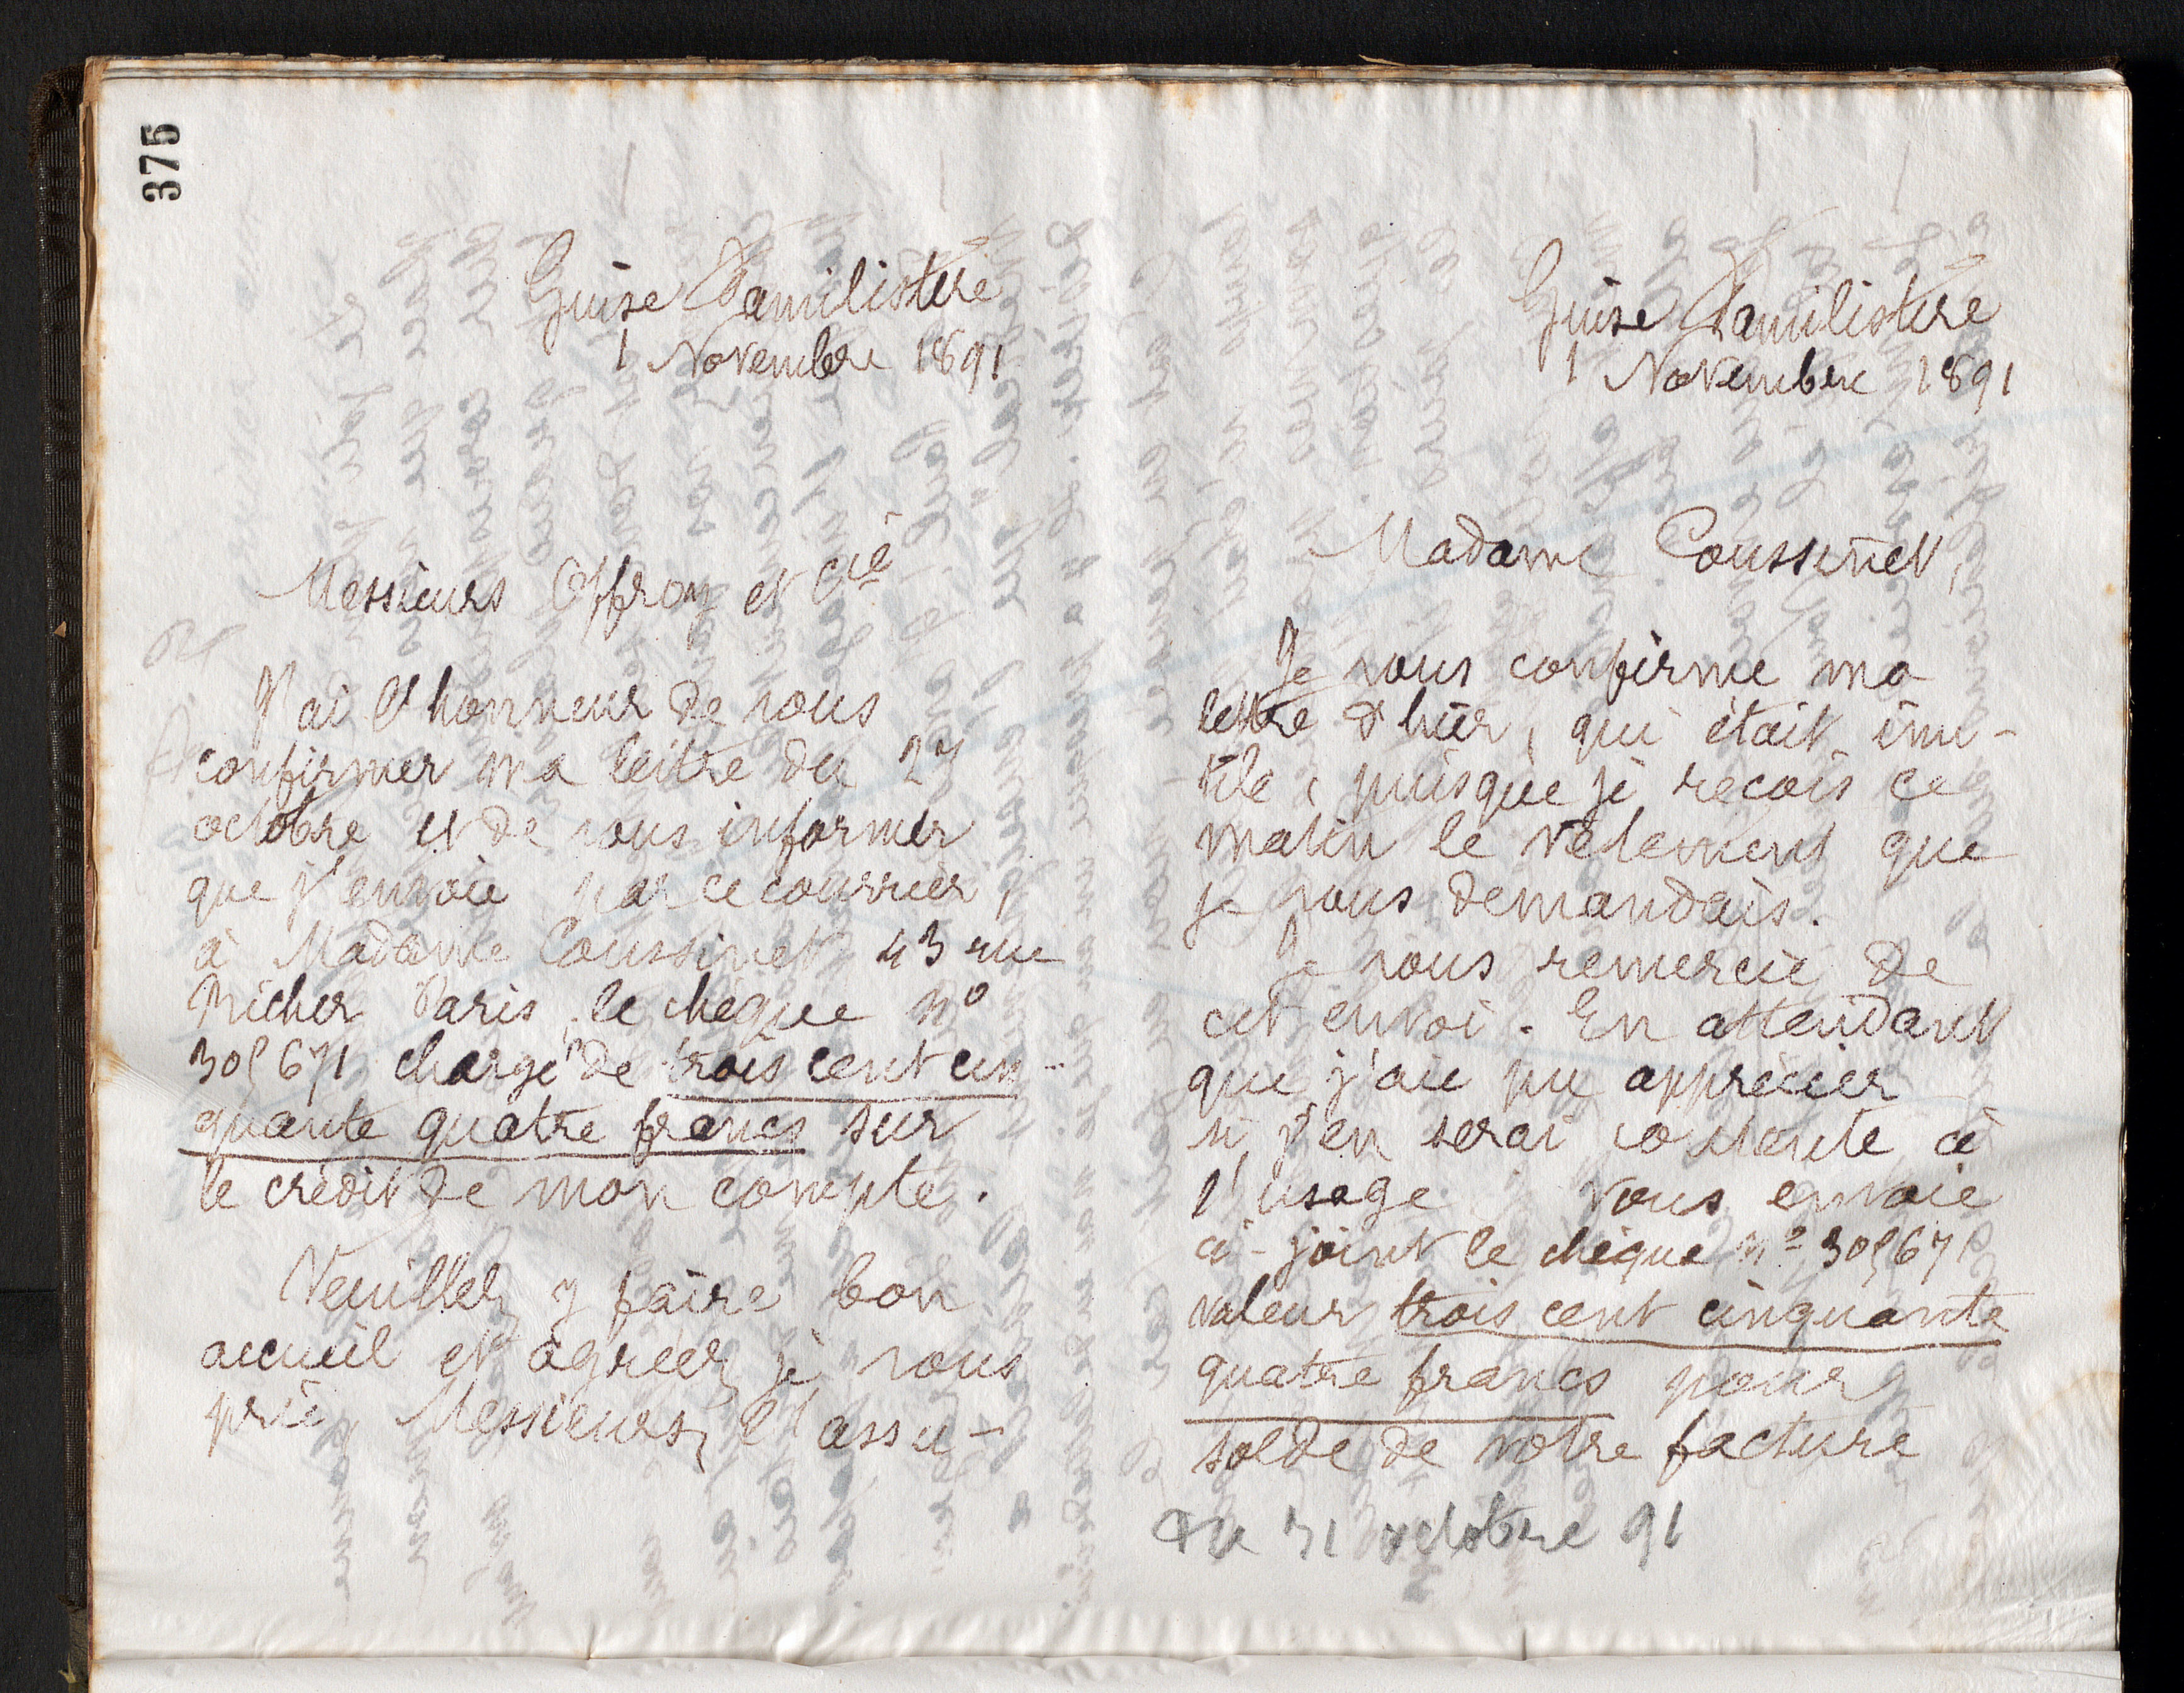 375
Guise Familistère
1 Novembre 1891
Messieurs Offroy et Cie
J'ai l'honneur de vous
confirmer ma lettre du 27
octobre et de vous informer
que j'envoie par ce courrier,
à Madame Coussinet 43 rue
Richer Paris, le chèque no
305671 chargé de trois cent cin-
quante quatre francs sur
le crédit de mon compte.
Veuillez y faire bon
accueil et agréer, je vous
prie, Messieurs, l'assu-
Guise Familistère
1 Novembre 1891
Madame Coussinet,
Je vous confirme ma
lettre d'hier, qui était inu-
tile, puisque je reçois ce
matin le vêtement que
je vous demandais.
Je vous remercie de
cet envoi. En attendant
que j'aie pu apprécier
si j'en serai contente à
l'usage vous envoie
ci-joint le chèque no 305671
valeur trois cent cinquante
quatre francs pour
solde de votre facture
du 31 octobre 91